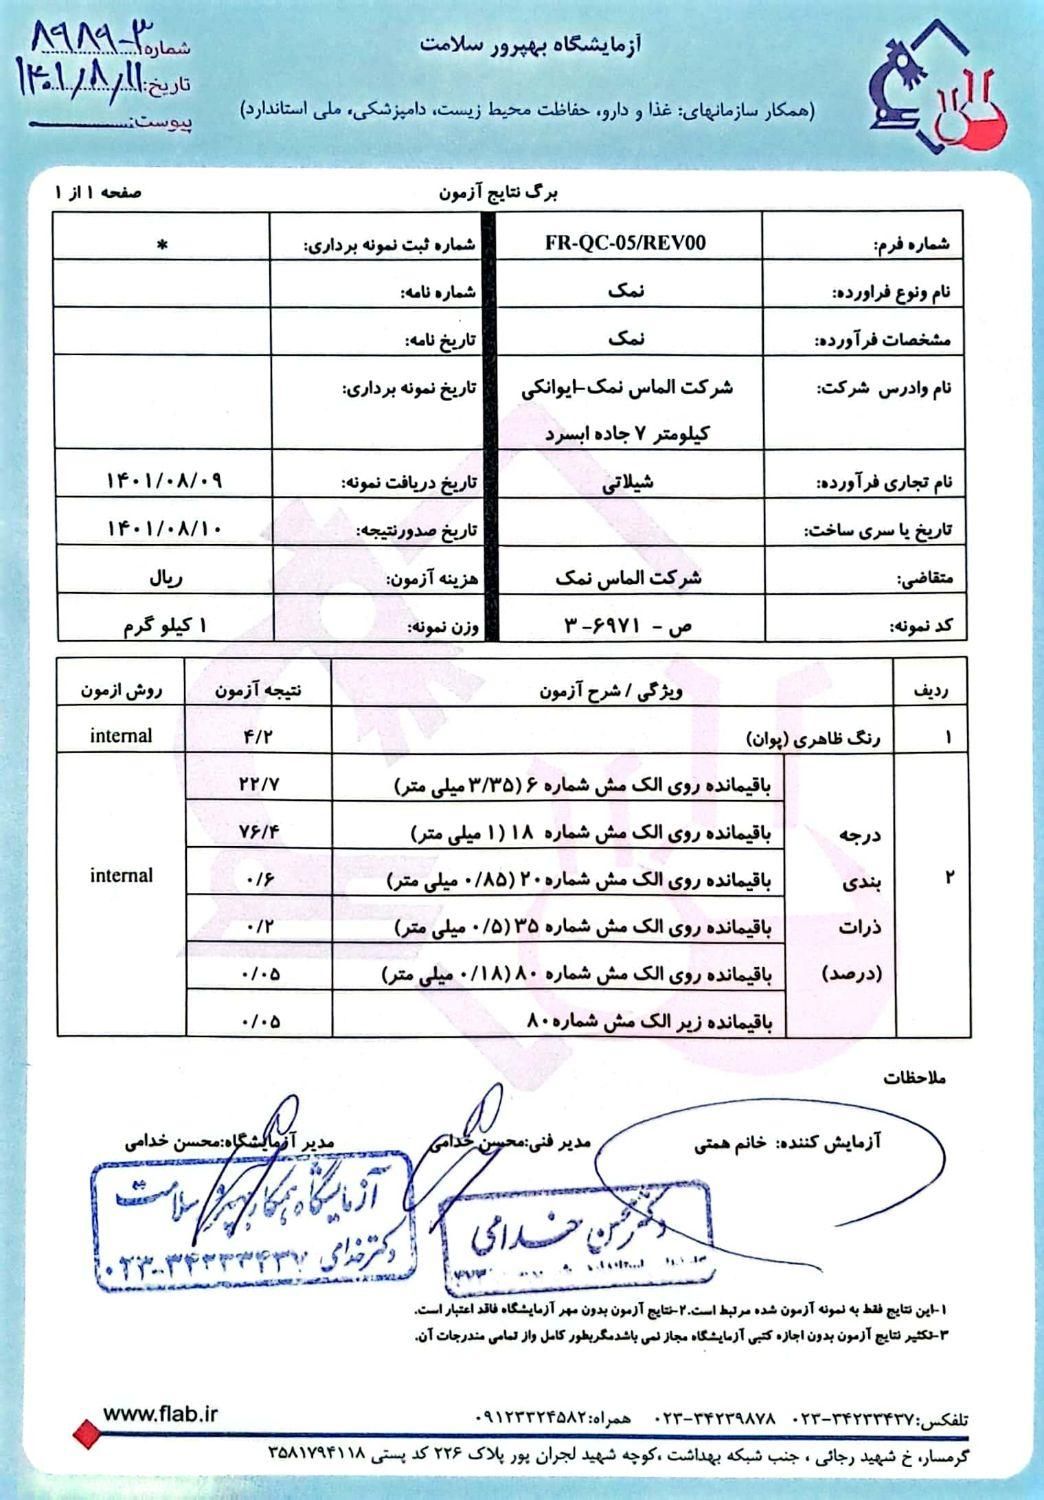 آزمایشگاه بهپرور سلامت
(همکار سازمانهای: غذا و دارو، حفاظت محیط زیست، دامپزشکی، ملی استاندارد)
شماره: ۸۹۸۹-۳
تاریخ: ۱۴۰۱/۸/۱۱
پیوست:
برگ نتایج آزمون
صفحه ۱ از ۱
شماره فرم: FR-QC-05/REV00 شماره ثبت نمونه برداری: *
نام ونوع فراورده: نمک شماره نامه:
مشخصات فرآورده: نمک تاریخ نامه:
نام وادرس شرکت: شرکت الماس نمک-ایوانکی تاریخ نمونه برداری:
کیلومتر ۷ جاده ابسرد
نام تجاری فرآورده: شیلاتی تاریخ دریافت نمونه: ۱۴۰۱/۰۸/۰۹
تاریخ یا سری ساخت: تاریخ صدورنتیجه: ۱۴۰۱/۰۸/۱۰
متقاضی: شرکت الماس نمک هزینه آزمون: ریال
کد نمونه: ص - ۶۹۷۱-۳ وزن نمونه: ۱ کیلو گرم
ردیف ویژگی / شرح آزمون نتیجه آزمون روش ازمون
۱ رنگ ظاهری (پوان) ۴/۲ internal
باقیمانده روی الک مش شماره ۶ (۳/۳۵ میلی متر) ۲۲/۷
درجه باقیمانده روی الک مش شماره ۱۸ (۱ میلی متر) ۷۶/۴
۲ بندی باقیمانده روی الک مش شماره۲۰ (۰/۸۵ میلی متر) ۰/۶ internal
ذرات باقیمانده روی الک مش شماره ۳۵ (۰/۵ میلی متر) ۰/۲
(درصد) باقیمانده روی الک مش شماره ۸۰ (۰/۱۸ میلی متر) ۰/۰۵
باقیمانده زیر الک مش شماره۸۰ ۰/۰۵
ملاحظات
آزمایش کننده: خانم همتی مدیر فنی:محسن خدامی مدیر آزمایشگاه:محسن خدامی
دکتر محسن خدامی
آزمایشگاه همکار بهپرور سلامت
دکتر خدامی ۰۲۳-۳۴۲۳۳۴۳۷
۱-این نتایج فقط به نمونه آزمون شده مرتبط است.۲-نتایج آزمون بدون مهر آزمایشگاه فاقد اعتبار است.
۳-تکثیر نتایج آزمون بدون اجازه کتبی آزمایشگاه مجاز نمی باشدمگربطور کامل واز تمامی مندرجات آن.
تلفکس: ۰۲۳-۳۴۲۳۳۴۳۷ ۰۲۳-۳۴۲۳۹۸۷۸ همراه: ۰۹۱۲۳۳۲۴۵۸۲
www.flab.ir
گرمسار، خ شهید رجائی ، جنب شبکه بهداشت ،کوچه شهید لجران پور پلاک ۲۲۶ کد پستی ۳۵۸۱۷۹۴۱۱۸